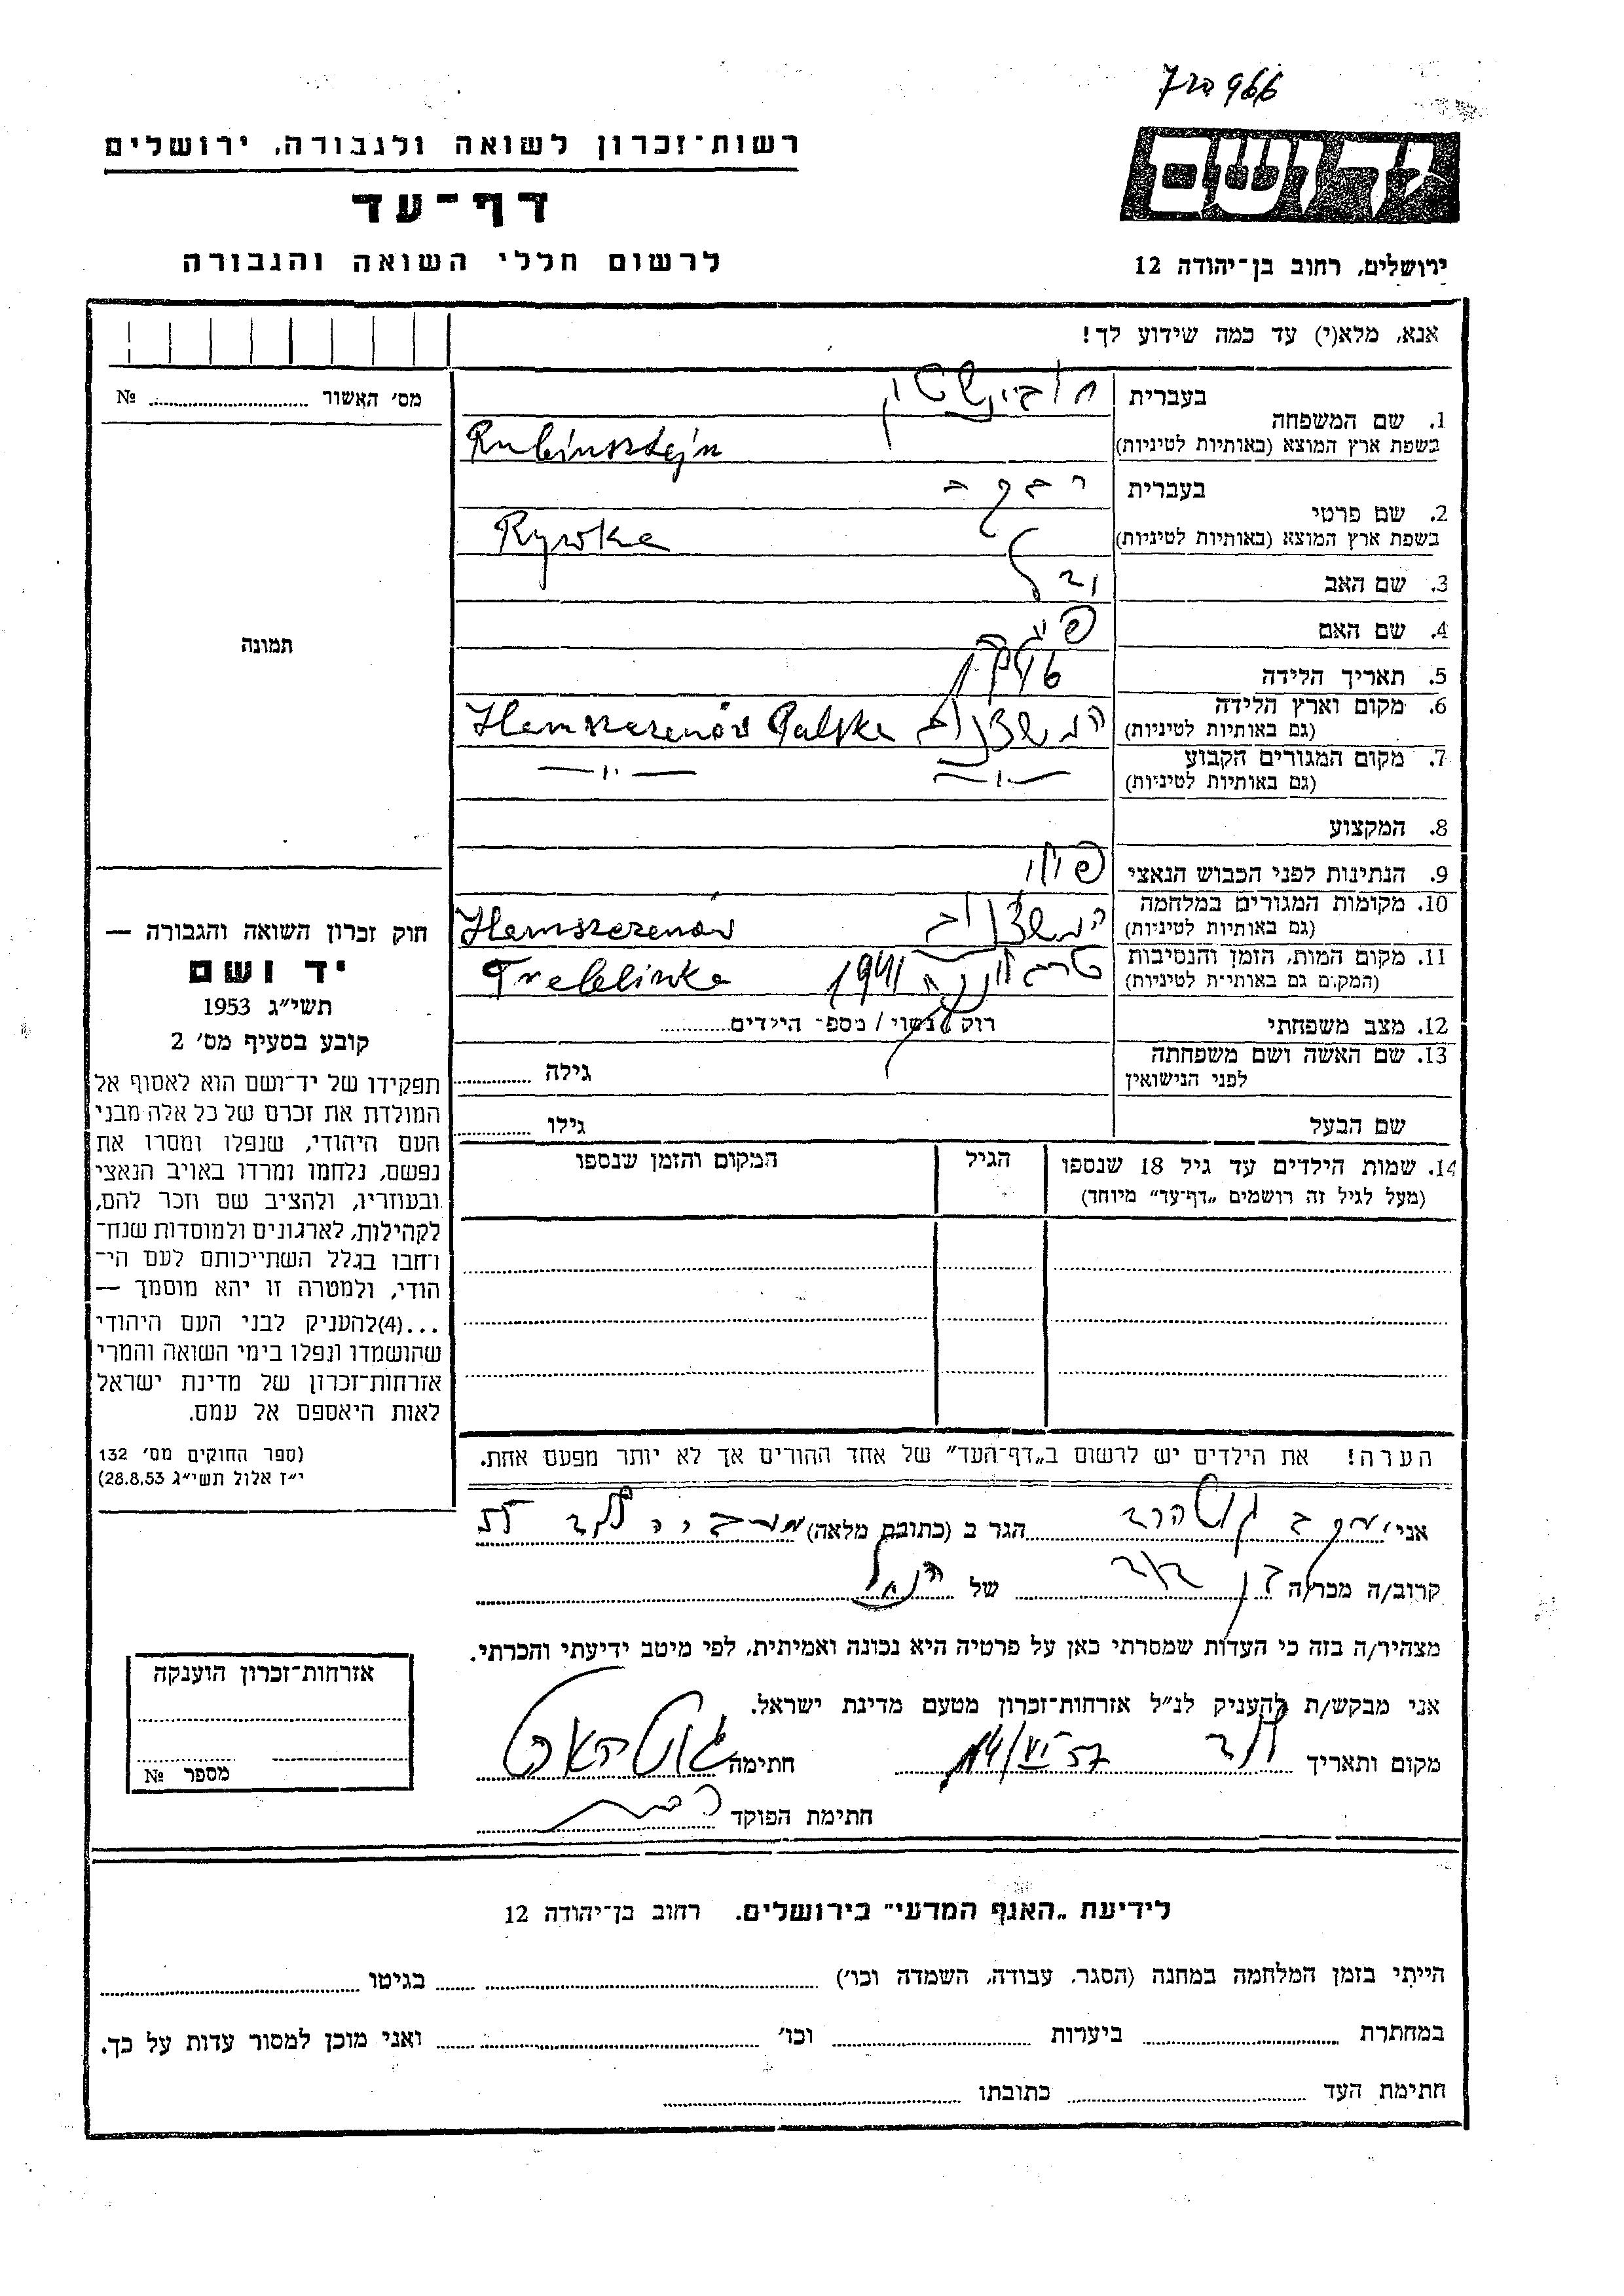 966
רשות-זכרון לשואה ולגבורה, ירושלים
דף-עד
לרשום חללי השואה והגבורה
ירושלים, רחוב בן-יהודה 12
אנא, מלא(י) עד כמה שידוע לך!
מס׳ האשור № 
1. שם המשפחה
בעברית רובינשטיין
בשפת ארץ המוצא (באותיות לטיניות) Rubinsztejn
2. שם פרטי
בעברית רבקה
בשפת ארץ המוצא (באותיות לטיניות) Rywka
3. שם האב
4. שם האם
5. תאריך הלידה
6. מקום וארץ הלידה
(גם באותיות לטיניות) Polska
7. מקום המגורים הקבוע
(גם באותיות לטיניות) —"— —"—
8. המקצוע
9. הנתינות לפני הכבוש הנאצי
10. מקומות המגורים במלחמה
(גם באותיות לטיניות)
11. מקום המות, הזמן והנסיבות
(המקום גם באותיות לטיניות) טרבלינקה 1941 Treblinka
12. מצב משפחתי רוק / נשוי / מספר הילדים
13. שם האשה ושם משפחתה
לפני הנישואין גילה
שם הבעל גילו
14. שמות הילדים עד גיל 18 שנספו הגיל המקום והזמן שנספו
(מעל לגיל זה רושמים „דף-עד" מיוחד)
תמונה
חוק זכרון השואה והגבורה —
יד ושם
תשי״ג 1953
קובע בסעיף מס׳ 2
תפקידו של יד-ושם הוא לאסוף אל
המולדת את זכרם של כל אלה מבני
העם היהודי, שנפלו ומסרו את
נפשם, נלחמו ומרדו באויב הנאצי
ובעוזריו, ולהציב שם וזכר להם,
לקהילות, לארגונים ולמוסדות שנח-
רבו בגלל השתייכותם לעם הי-
הודי, ולמטרה זו יהא מוסמך —
...(4)להעניק לבני העם היהודי
שהושמדו ונפלו בימי השואה והמרי
אזרחות-זכרון של מדינת ישראל
לאות היאספם אל עמם.
(ספר החוקים מס׳ 132
י״ז אלול תשי״ג 28.8.53)
הערה! את הילדים יש לרשום ב„דף-העד" של אחד ההורים אך לא יותר מפעם אחת.
אני הגר ב (כתובת מלאה)
קרוב/ה מכר/ה של
מצהיר/ה בזה כי העדות שמסרתי כאן על פרטיה היא נכונה ואמיתית, לפי מיטב ידיעתי והכרתי.
אני מבקש/ת להעניק לנ״ל אזרחות-זכרון מטעם מדינת ישראל.
מקום ותאריך לוד 14/VI 57 חתימה
חתימת הפוקד
אזרחות-זכרון הוענקה
מספר №
לידיעת „האגף המדעי" בירושלים. רחוב בן-יהודה 12
הייתי בזמן המלחמה במחנה (הסגר, עבודה, השמדה וכו׳) בגיטו
במחתרת ביערות וכו׳ ואני מוכן למסור עדות על כך.
חתימת העד כתובתו